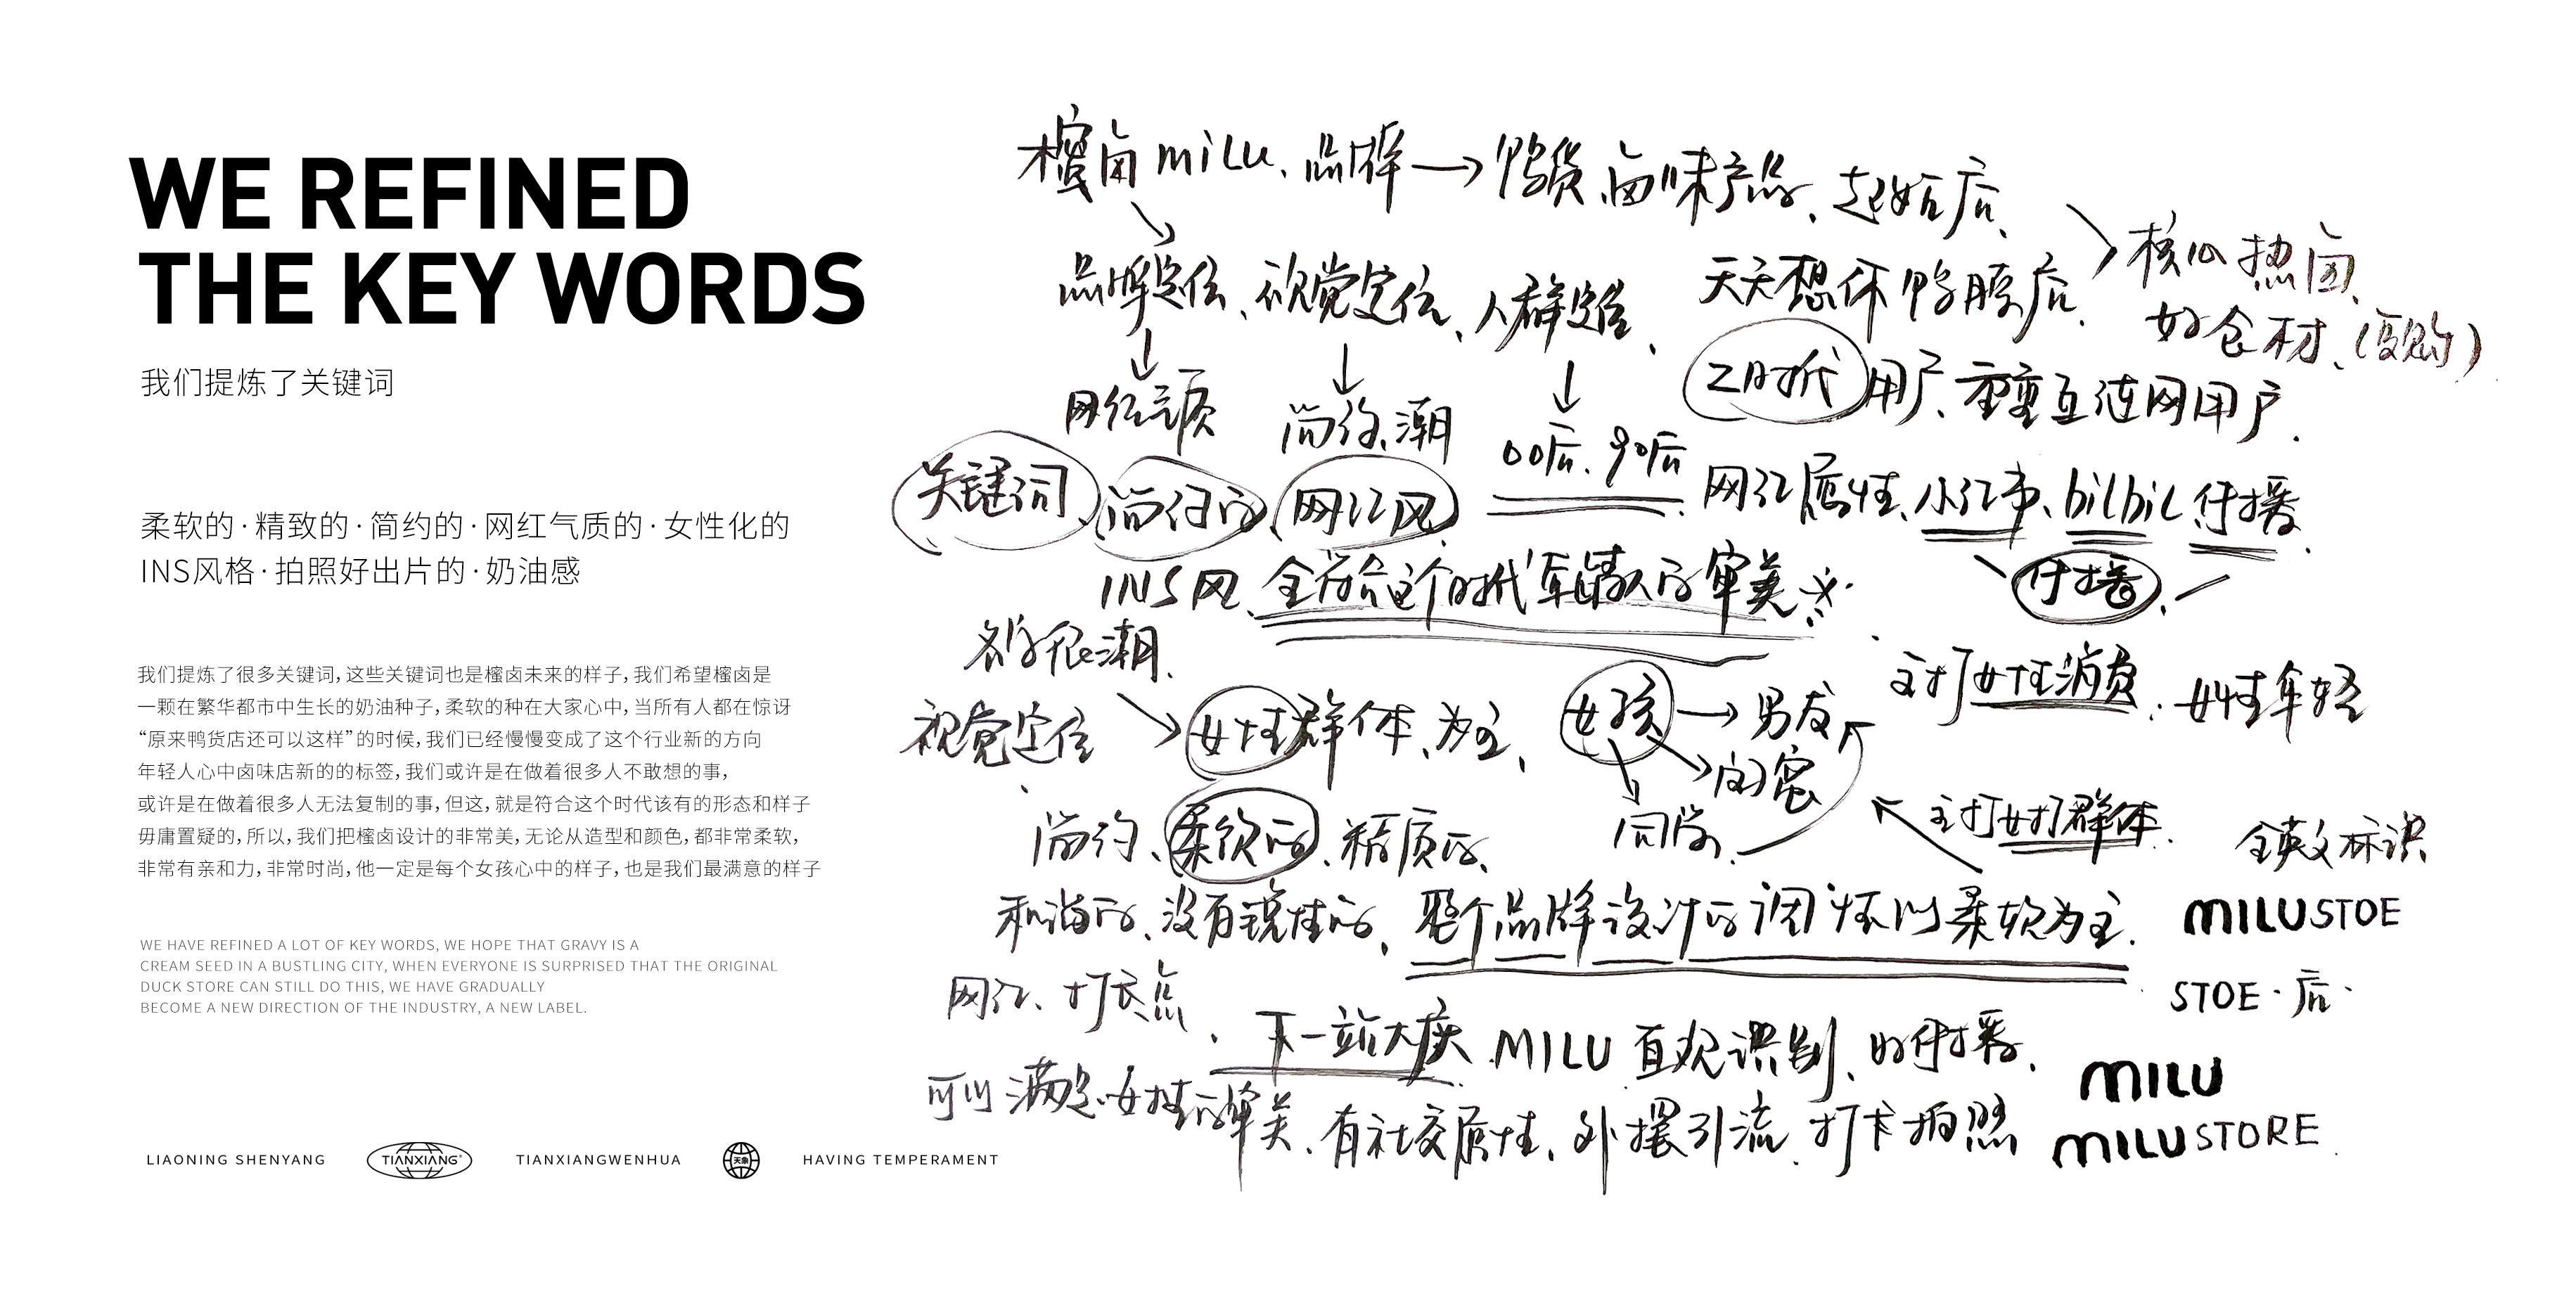 WE REFINED
THE KEY WORDS
我们提炼了关键词
柔软的·精致的·简约的·网红气质的·女性化的
INS风格·拍照好出片的·奶油感
我们提炼了很多关键词,这些关键词也是榓卤未来的样子,我们希望榓卤是
一颗在繁华都市中生长的奶油种子,柔软的种在大家心中,当所有人都在惊讶
“原来鸭货店还可以这样”的时候,我们已经慢慢变成了这个行业新的方向
年轻人心中卤味店新的的标签,我们或许是在做着很多人不敢想的事,
或许是在做着很多人无法复制的事,但这,就是符合这个时代该有的形态和样子
毋庸置疑的,所以,我们把榓卤设计的非常美,无论从造型和颜色,都非常柔软,
非常有亲和力,非常时尚,他一定是每个女孩心中的样子,也是我们最满意的样子
WE HAVE REFINED A LOT OF KEY WORDS, WE HOPE THAT GRAVY IS A
CREAM SEED IN A BUSTLING CITY, WHEN EVERYONE IS SURPRISED THAT THE ORIGINAL
DUCK STORE CAN STILL DO THIS, WE HAVE GRADUALLY
BECOME A NEW DIRECTION OF THE INDUSTRY, A NEW LABEL.
LIAONING SHENYANG TIANXIANG® TIANXIANGWENHUA 天象 HAVING TEMPERAMENT
榓卤 miLu、品牌→鸭货、卤味产品、
品牌定位、视觉定位、人群定位、
核心热卤、
好食材、
Z时代用户、互连网用户.
简约、潮
00后、90后
关键词、简约的、网红风、
网红属性、bilbil传播.
INS风、全符合这个时代年轻人的审美
传播、
名字很潮、
主打女性消费. 女性年轻
视觉定位
女性群体、为主、
女孩→男友
闺蜜
同学、
主打女性群体.
简约、柔软的、精质的、
全英文标识
和谐的、没有锐性的、整个品牌设计的调性以柔软为主.
MILUSTOE
STOE·店·
网红、打卡点
下一站大庆 MILU 直观识别、好传播、
MILU
可以满足女性的审美、有社交属性、外摆引流、打卡拍照
MILUSTORE